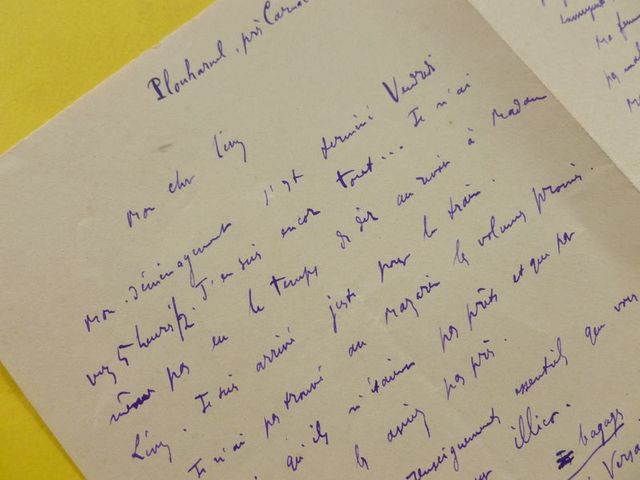 Plouharnel, près Carnac
Mon cher Lévy
Mon déménagement s'est terminé Vendredi
vers 5 heures 1/2. J'en suis encore tout... Je n'ai
même pas eu le temps de dire au revoir à Madame
Lévy. Je suis arrivé juste pour le train.
Je n'ai pas trouvé au magasin les volumes promis.
qu'ils n'étaient pas prêts et que
les avais pas pris.
renseignements essentiels que vous
illico.
bagages